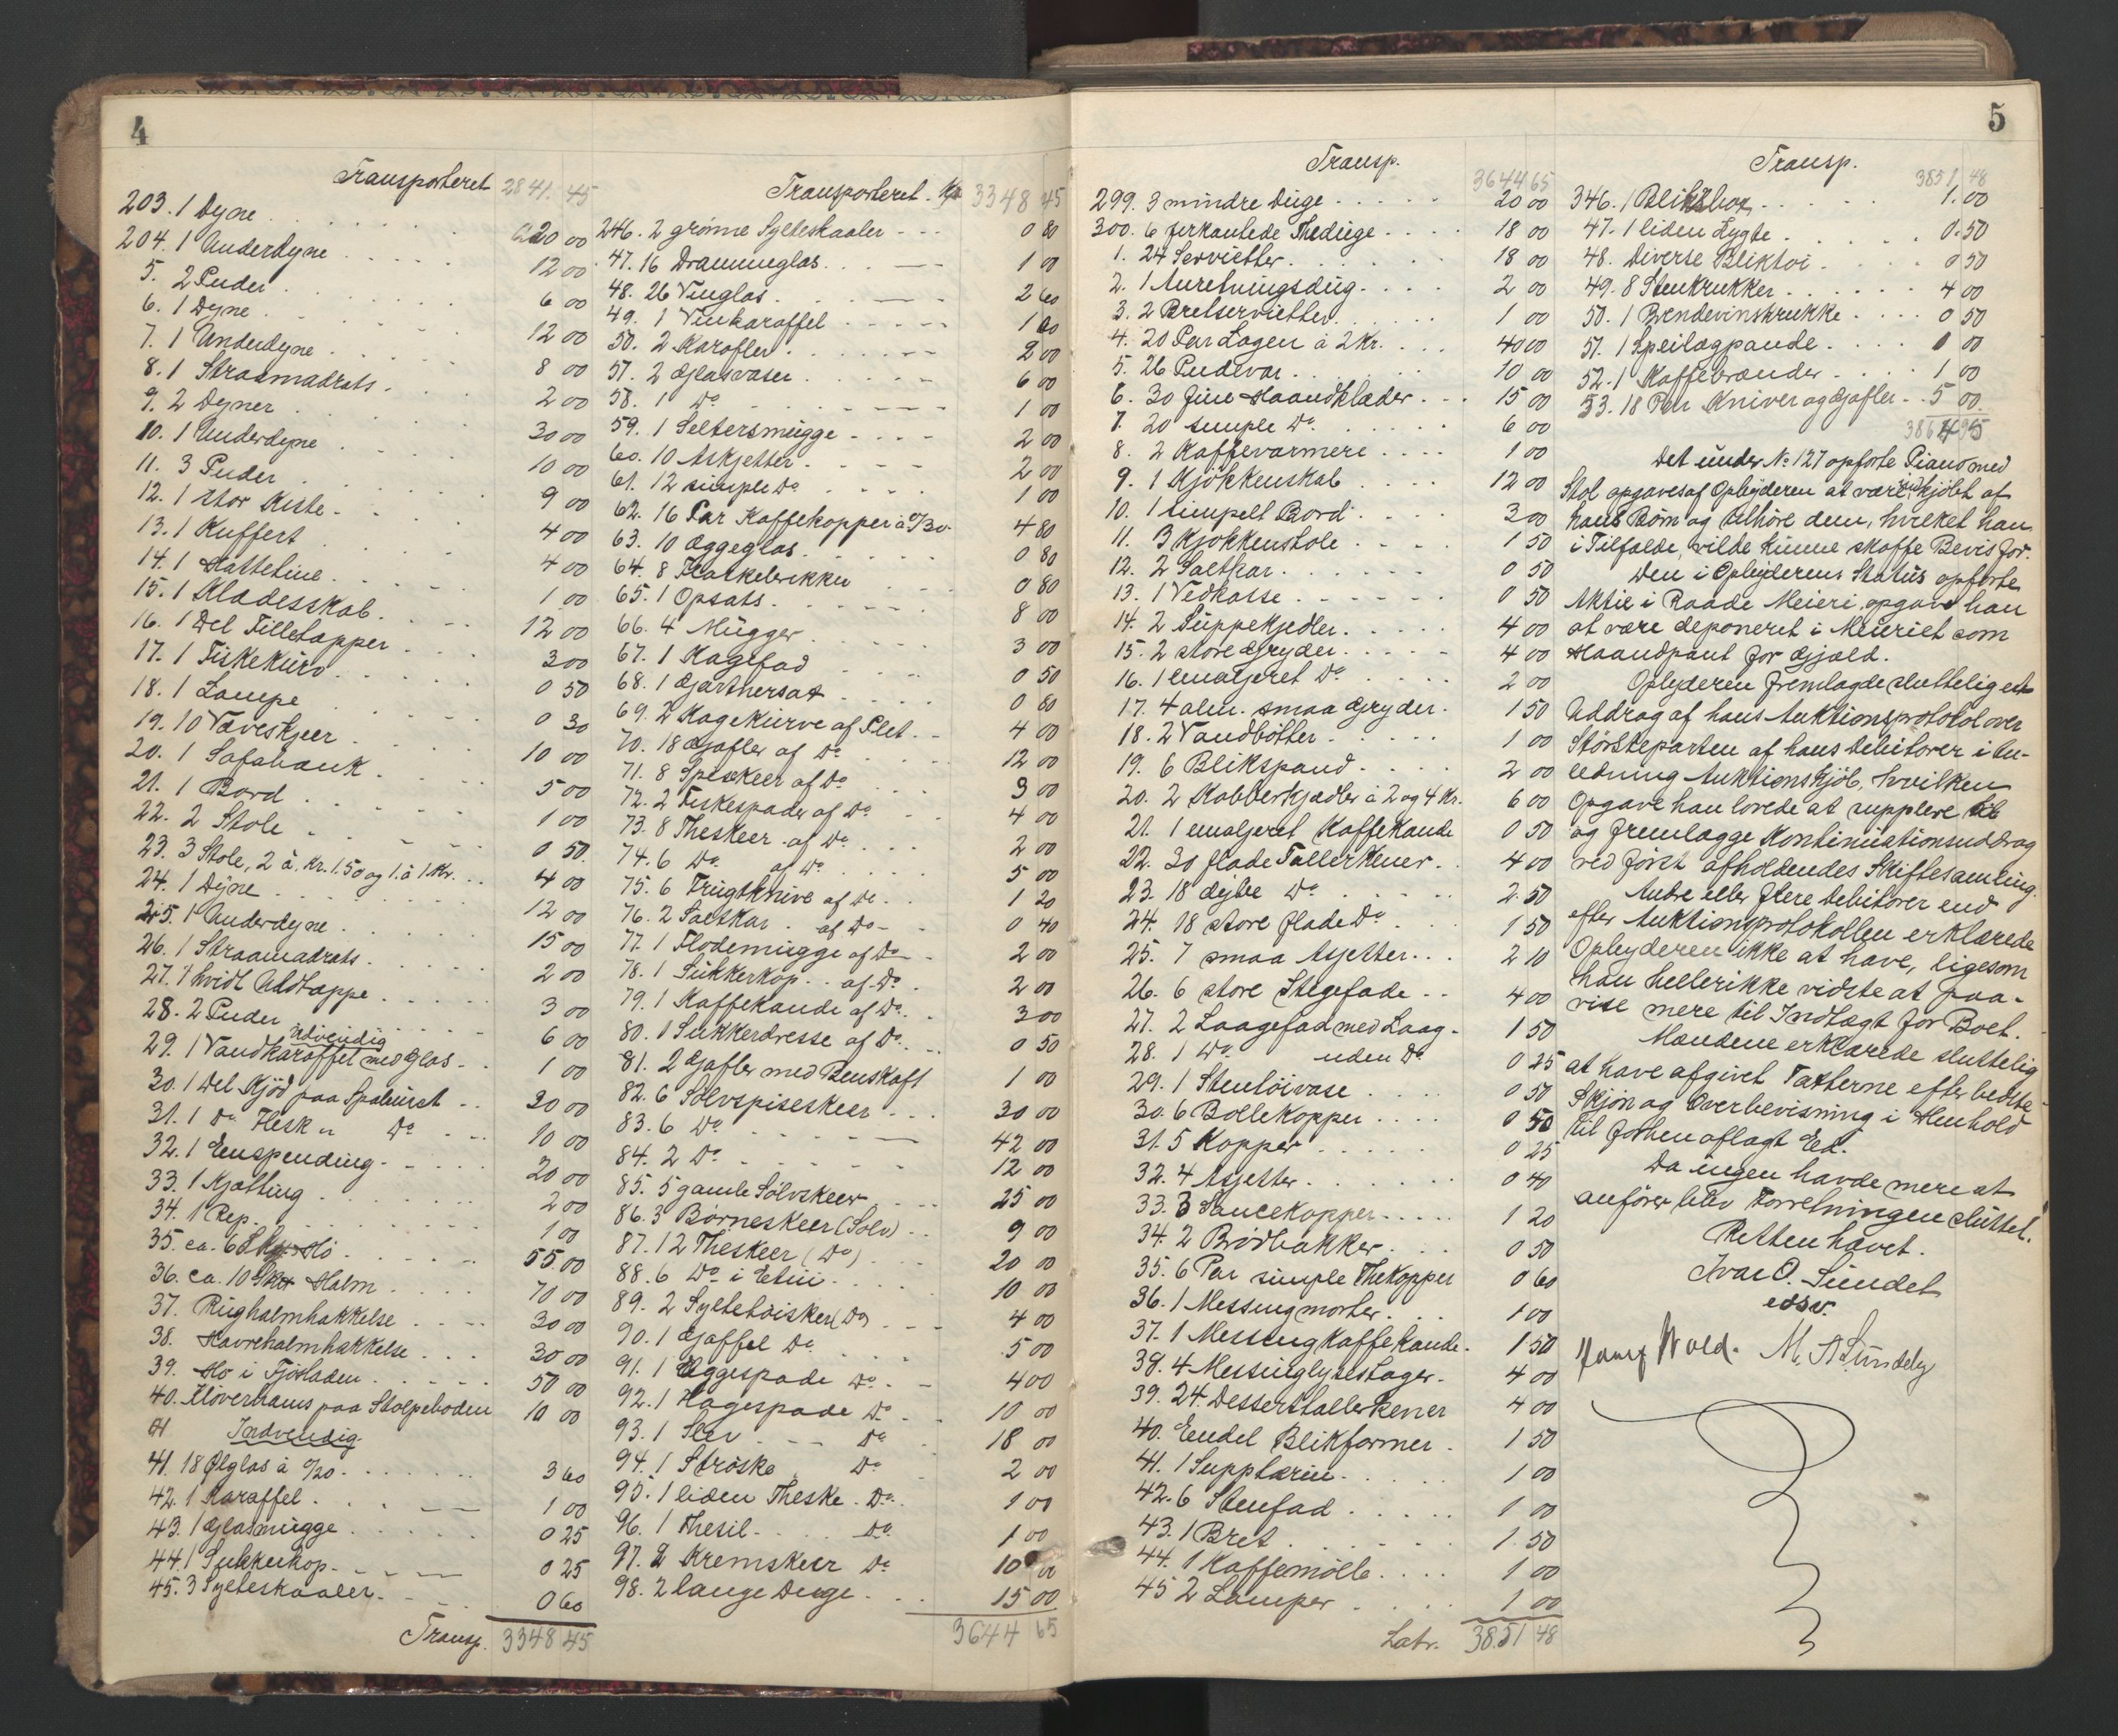 4
Transporteret 2841.45
203. 1 Dyne . . . . 20 00
204. 1 Underdyne . . . . 12 00
5. 2 Puder . . . . 6 00
6. 1 Dyne . . . . 12 00
7. 1 Underdyne . . . . 8 00
8. 1 Straamadrats . . . . 2 00
9. 2 Dyner . . . . 30 00
10. 1 Underdyne . . . . 10 00
11. 3 Puder . . . . 9 00
12. 1 stor Kiste . . . . 4 00
13. 1 Kuffert . . . . 4 00
14. 1 Hattetine . . . . 1 00
15. 1 Klædesskab . . . . 12 00
16. 1 Del Filletæpper . . . . 3 00
17. 1 Fiskekurv . . . . 0 50
18. 1 Lampe . . . . 0 30
19. 10 Væveskjeer . . . . 10 00
20. 1 Sofabænk . . . . 5 00
21. 1 Bord . . . . 1 00
22. 2 Stole . . . . 0 50
23. 3 Stole, 2 à Kr. 1.50 og 1 à 1 Kr. . . 4 00
24. 1 Dyne . . . . 12 00
25. 1 Underdyne . . . . 15 00
26. 1 Straamadrats . . . . 2 00
27. 1 hvidt Uldtæppe . . . . 3 00
28. 2 Puder . . . . 6 00
29. 1 Vandkaraffel med Glas . . 1 00
udvendig
30. 1 Del Kjød paa Spaburet . . 30 00
31. 1 Do Flesk " Do . . 10 00
32. 1 Enspending . . . . 20 00
33. 1 Kjætting . . . . 2 00
34. 1 Rep . . . . 1 00
35. ca. 6 Skp Hö . . . . 55.00
36. ca. 10 Halm . . . . 70 00
37. Rughalmhakkelse . . . . 30 00
38. Havrehalmhakkelse . . . 30 00
39. Hö i Fjösladen . . . . 50 00
40. Kløverhams paa Stolpeboden 10 00
Indvendig
41. 18 Ølglas à 0/20 . . . . 3 60
42. 1 Karaffel . . . . 1 00
43. 1 Glasmugge . . . . 0 25
44. 1 Sukkerkop . . . . 0 25
45. 3 Sylteskaaler . . . . 0 60
Transp. 3348 45
Transporteret . Kr. 3348 45
246. 2 grønne Sylteskaaler . . . 0 80
47. 16 Dramunglas . . . 1 00
48. 26 Vinglas . . . 2 60
49. 1 Vinkaraffel . . . 1 00
50. 2 Karafler . . . 2 00
57. 2 Glasvaser . . . 6 00
58. 1 Do . . . 1 00
59. 1 Seltersmugge . . . 2 00
60. 10 Askjetter . . . 2 00
61. 12 simple Do . . . 1 00
62. 16 Par Kaffekopper à 0/30 . 4 80
63. 10 Æggeglas . . . 0 80
64. 8 Flaskebrikker 0 80
65. 1 Opsats . . . 8 00
66. 4 Mugger . . . 3 00
67. 1 Kagefad . . . 0 50
68. 1 Gartnersax . . . 0 80
69. 2 Kagekurve af Plet . . 4 00
70. 18 Gafler af Do . . . 12 00
71. 8 Speskeer af Do . . . 9 00
72. 2 Fiskespader af Do . . 4 00
73. 8 Theskeer af Do . . . 2 00
74. 6 Do af Do . . . 5 00
75. 6 Frugtknive af Do . . 1 20
76. 2 Saltkar . af Do . 0 40
77. 1 Flödemugge af Do . 2 00
78. 1 Sukkerkop . . af Do . 2 00
79. 1 Kaffekande af Do . . 3 00
80. 1 Sukkerdresse af Do . . 0 50
81. 2 Gafler med Benskaft 1 00
82. 6 Sølvspiseskeer . . . 30 00
83. 6 Do . . . 42 00
84. 2 Do . . . 12 00
85. 5 gamle Sølvskeer . . 25 00
86. 3 Börneskeer (Sølv) . . 9 00
87. 12 Theskeer (Do) . . . 20 00
88. 6 Do i Etui . . . 10 00
89. 2 Syltetöisker (Do) . . . 4 00
90. 1 Gaffel Do . . . 5 00
91. 1 Æggespade Do . . 4 00
92. 1 Kagespade Do . . 10 00
93. 1 Slev . . . Do . 18 00
94. 1 Ströske . Do . 2 00
95. 1 liden Theske . Do . 1 00
96. 1 Thesil . . . Do 1 00
97. 2 Kremskeer Do 10 00
98. 2 lange Duge . . . 15 00
3644 65
5
Transp. 3644 65
299. 3 mindre Duge . . . . 20 00
300. 6 firkantede Theduge . . . . 18 00
1. 24 Servietter . . . . 18 00
2. 1 Anretningsdug . . . . 2 00
3. 2 Bretservietter . . . . 1 00
4. 20 Par Lagen à 2 Kr. . . . 40 00
5. 26 Pudevar . . . . 10 00
6. 30 fine Haandklæder . . . 15 00
7. 20 simple Do . . . . 6 00
8. 2 Kaffevarmere . . . . 1 00
9. 1 Kjökkenskab . . . . 12 00
10. 1 simpelt Bord . . . . 3 00
11. 3 Kjökkenstole . . . . 1 50
12. 2 Saltkar . . . . 0 50
13. 1 Vedkasse . . . . 0 50
14. 2 Suppekjedler . . . . 4 00
15. 2 store Gryder . . . . 4 00
16. 1 emaljeret Do . . . . 2 00
17. 4 alm. smaa Gryder . 1 50
18. 2 Vandbötter . . . . 1 00
19. 6 Blikspand . . . . 2 00
20. 2 Kobberkjedler à 2 og 4 Kr. 6 00
21. 1 emaljeret Kaffekande 0 50
22. 30 flade Tallerkener . . 4 00
23. 18 dybe Do . . . 2.50
24. 18 store flade Do . . . 1 50
25. 7 smaa Asjetter . . . 2 10
26. 6 store Stegefade . . 4 00
27. 2 Laagefad med Laag . 1 50
28. 1 Do uden Do 0 25
29. 1 Stentöivase . . . . 0 50
30. 6 Bollekopper . . . . 0 50
31. 5 Kopper . . . . 0 25
32. 4 Asjetter . . . . 0 40
33. 3 Saucekopper . . . . 1 20
34. 2 Brödbakker . . . 0 50
35. 6 Par simple Thekopper 0 60
36. 1 Messingmorter . . . 1 00
37. 1 Messingkaffekande . 1 50
38. 4 Messinglysestager . 4 00
39. 24 Desserttallerkener 4 00
40. Endel Blikformer . 1 50
41. 1 Supptærin . . . . 1 00
42. 6 Stenfad . . . . 1 00
43. 1 Bret . . . . 1.50
44. 1 Kaffemölle . . . . 1 00
45 2 Lamper . . . . 1 00
Latr. 3851 48
Transp. 3851 48
346. 1 . . . . 1.00
47. 1 liden Lygte . . . . 0.50
48. Diverse Bliktöi . . . . 0 50
49. 8 Stenkrukker . . . . 4 00
50. 1 Brendevinskrukke . . . . 0 50
51. 1 Speilægpande . . . . 1 00
52. 1 Kaffebrænder . . . . 1 00
53. 18 Par Kniver og Gafler . . 5 00
Det under No 127 opførte Piano med
Stol opgaves af Opbyderen at være indkjöbt af
hans Børn og tilhöre dem, hvilket han
i Tilfælde vilde kunne skaffe Bevis for.
Den i Opbyderens Status opförte
Aktie i Raade Meieri opgav han
at være deponeret i Meieriet som
Haandpant for Gjæld.
Opbyderen fremlagde sluttelig et
Uddrag af hans Auktionsprotokol over
Störsteparten af hans Debitorer i An-
ledning Auktionskjöb, hvilken
Opgave han lovede at supplere
og fremlægge Kontinuationsuddrag
ved först afholdendes Skiftesamling.
Andre eller flere Debitorer end
efter Auktionsprotokollen erklærede
Opbyderen ikke at have, ligesom
han heller ikke vidste at paa-
vise mere til Indtægt for Boet.
Mændene erklærede sluttelig
at have afgivet Taxterne efter bedste
Skjön og Overbevisning i Henhold
til forhen aflagt Ed.
Da ingen havde mere at
anföre blev Forretningen sluttet.
Retten hævet.
Ivar O. Sundet
edsv.
Wold. M. A Sundby